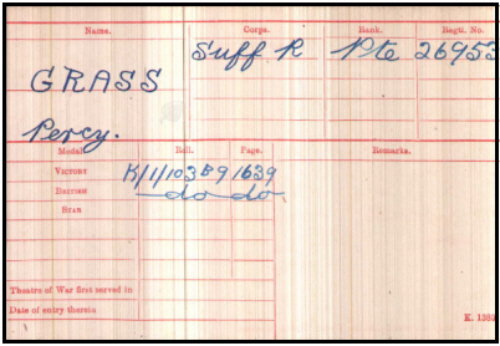 Name. Corps. Rank. Regtl. No.
Suff R Pte 26953
GRASS
Percy.
Medal Roll. Page. Remarks.
VICTORY K/1/103 B9 1639
BRITISH do do
STAR
Theatre of War first served in
Date of entry therein
K. 1380